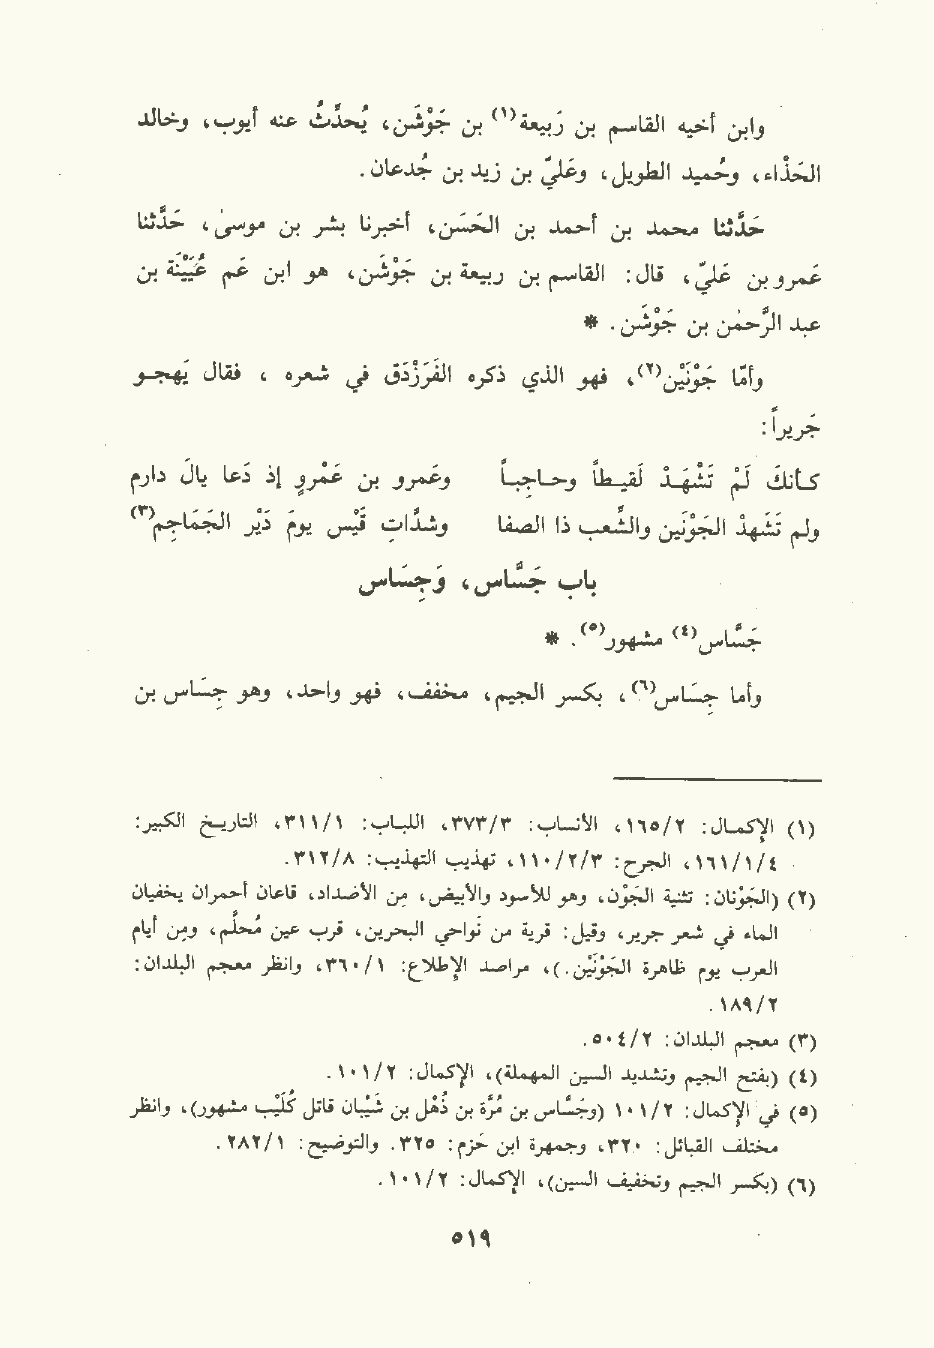 وابن أخيه القاسم بن رَبيعة(١) بن جَوْشَن، يُحدِّثُ عنه أيوب، وخالد
الحَذاء، وحُميد الطويل، وعَليّ بن زيد بن جُدعان.
حَدَّثنا محمد بن أحمد بن الحَسَن، أخبرنا بشر بن موسىٰ، حَدَّثنا
عَمرو بن عَليّ، قال: القاسم بن ربيعة بن جَوْشَن، هو ابن عَم عُيَيْنَة بن
عبد الرَّحمٰن بن جَوْشَن. *
وأمّا جَوْنَيْن(٢)، فهو الذي ذكره الفَرَزْدَق في شعره ، فقال يَهجو
جَريراً:
كأنكَ لَمْ تَشْهَدْ لَقيطاً وحاجباً وعَمرو بن عَمْروٍ إذ دَعا يالَ دارم
ولم تَشَهدْ الجَوْنَين والشَّعب ذا الصفا وشدَّاتِ قَيْس يومَ دَيْر الجَمَاجِم(٣)
باب جَسَّاس، وَجِسَاس
جَسَّاس(٤) مشهور(٥). *
وأما جِسَاس(٦)، بكسر الجيم، مخفف، فهو واحد، وهو جِسَاس بن
(١) الإكمال: ١٦٥/٢، الأنساب: ٣٧٣/٣، اللباب: ٣١١/١، التاريخ الكبير:
١٦١/١/٤، الجرح: ١١٠/٢/٣، تهذيب التهذيب: ٣١٢/٨.
(٢) (الجَوْنان: تثنية الجَوْن، وهو للأسود والأبيض، من الأضداد، قاعان أحمران يخفيان
الماء في شعر جرير، وقيل: قرية من نَواحي البحرين، قرب عين مُحلَّم، ومن أيام
العرب يوم ظاهرة الجَوْنَيْن.)، مراصد الإطلاع: ٣٦٠/١، وانظر معجم البلدان:
١٨٩/٢.
(٣) معجم البلدان: ٥٠٤/٢.
(٤) (بفتح الجيم وتشديد السين المهملة)، الإكمال: ١٠١/٢.
(٥) في الإكمال: ١٠١/٢ (وجَسَّاس بن مُرَّة بن ذُهَل بن شَيبَان قاتل كُلَيْب مشهور)، وانظر
مختلف القبائل: ٣٢٠، وجمهرة ابن حَزم: ٣٢٥. والتوضيح: ٢٨٢/١.
(٦) (بكسر الجيم وتخفيف السين)، الإكمال: ١٠١/٢.
٥١٩